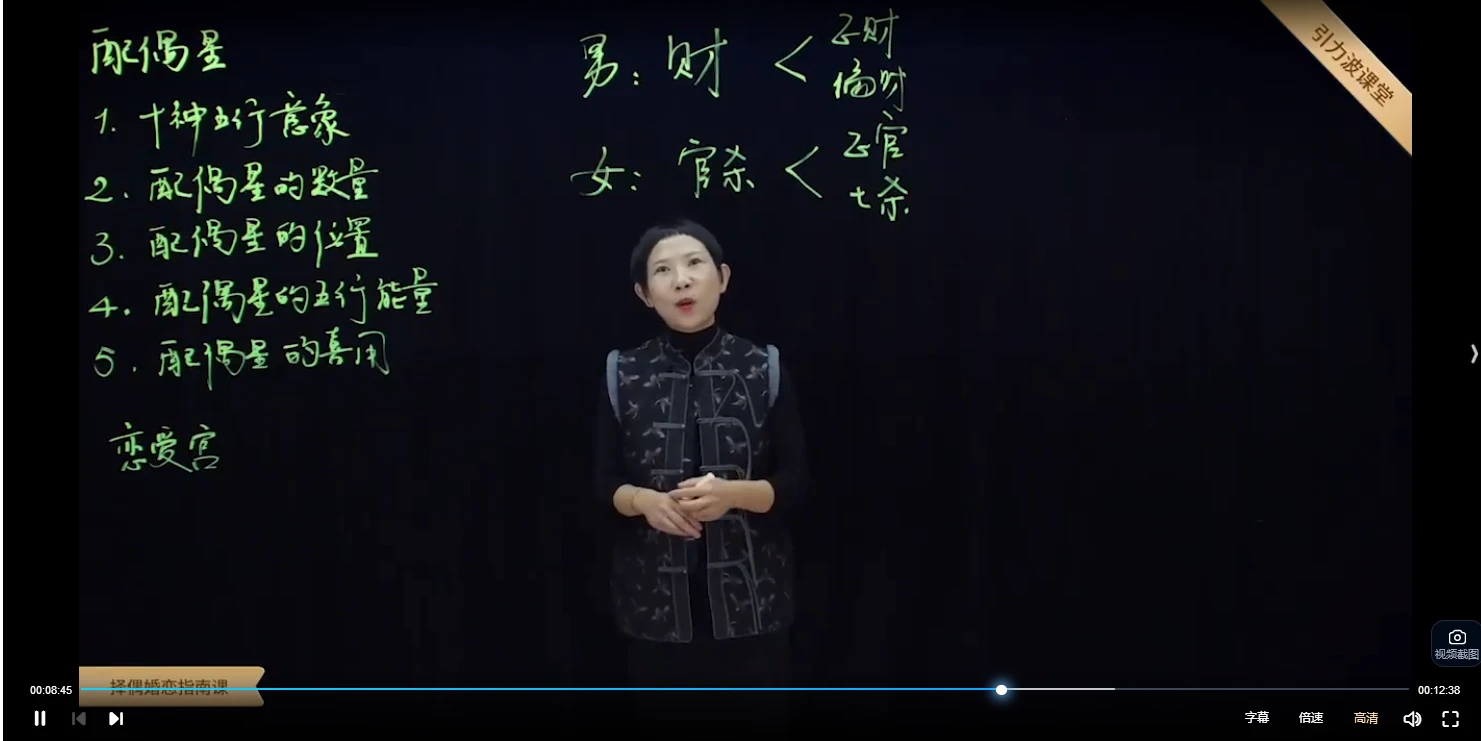 配偶星
1. 十神五行意象
2. 配偶星的数量
3. 配偶星的位置
4. 配偶星的五行能量
5. 配偶星的喜用
恋爱宫
男: 财 < 正财
偏财
女: 官杀 < 正官
七杀
引力波课堂
视频截图
择偶婚恋指南课
00:08:45
00:12:38
字幕
倍速
高清